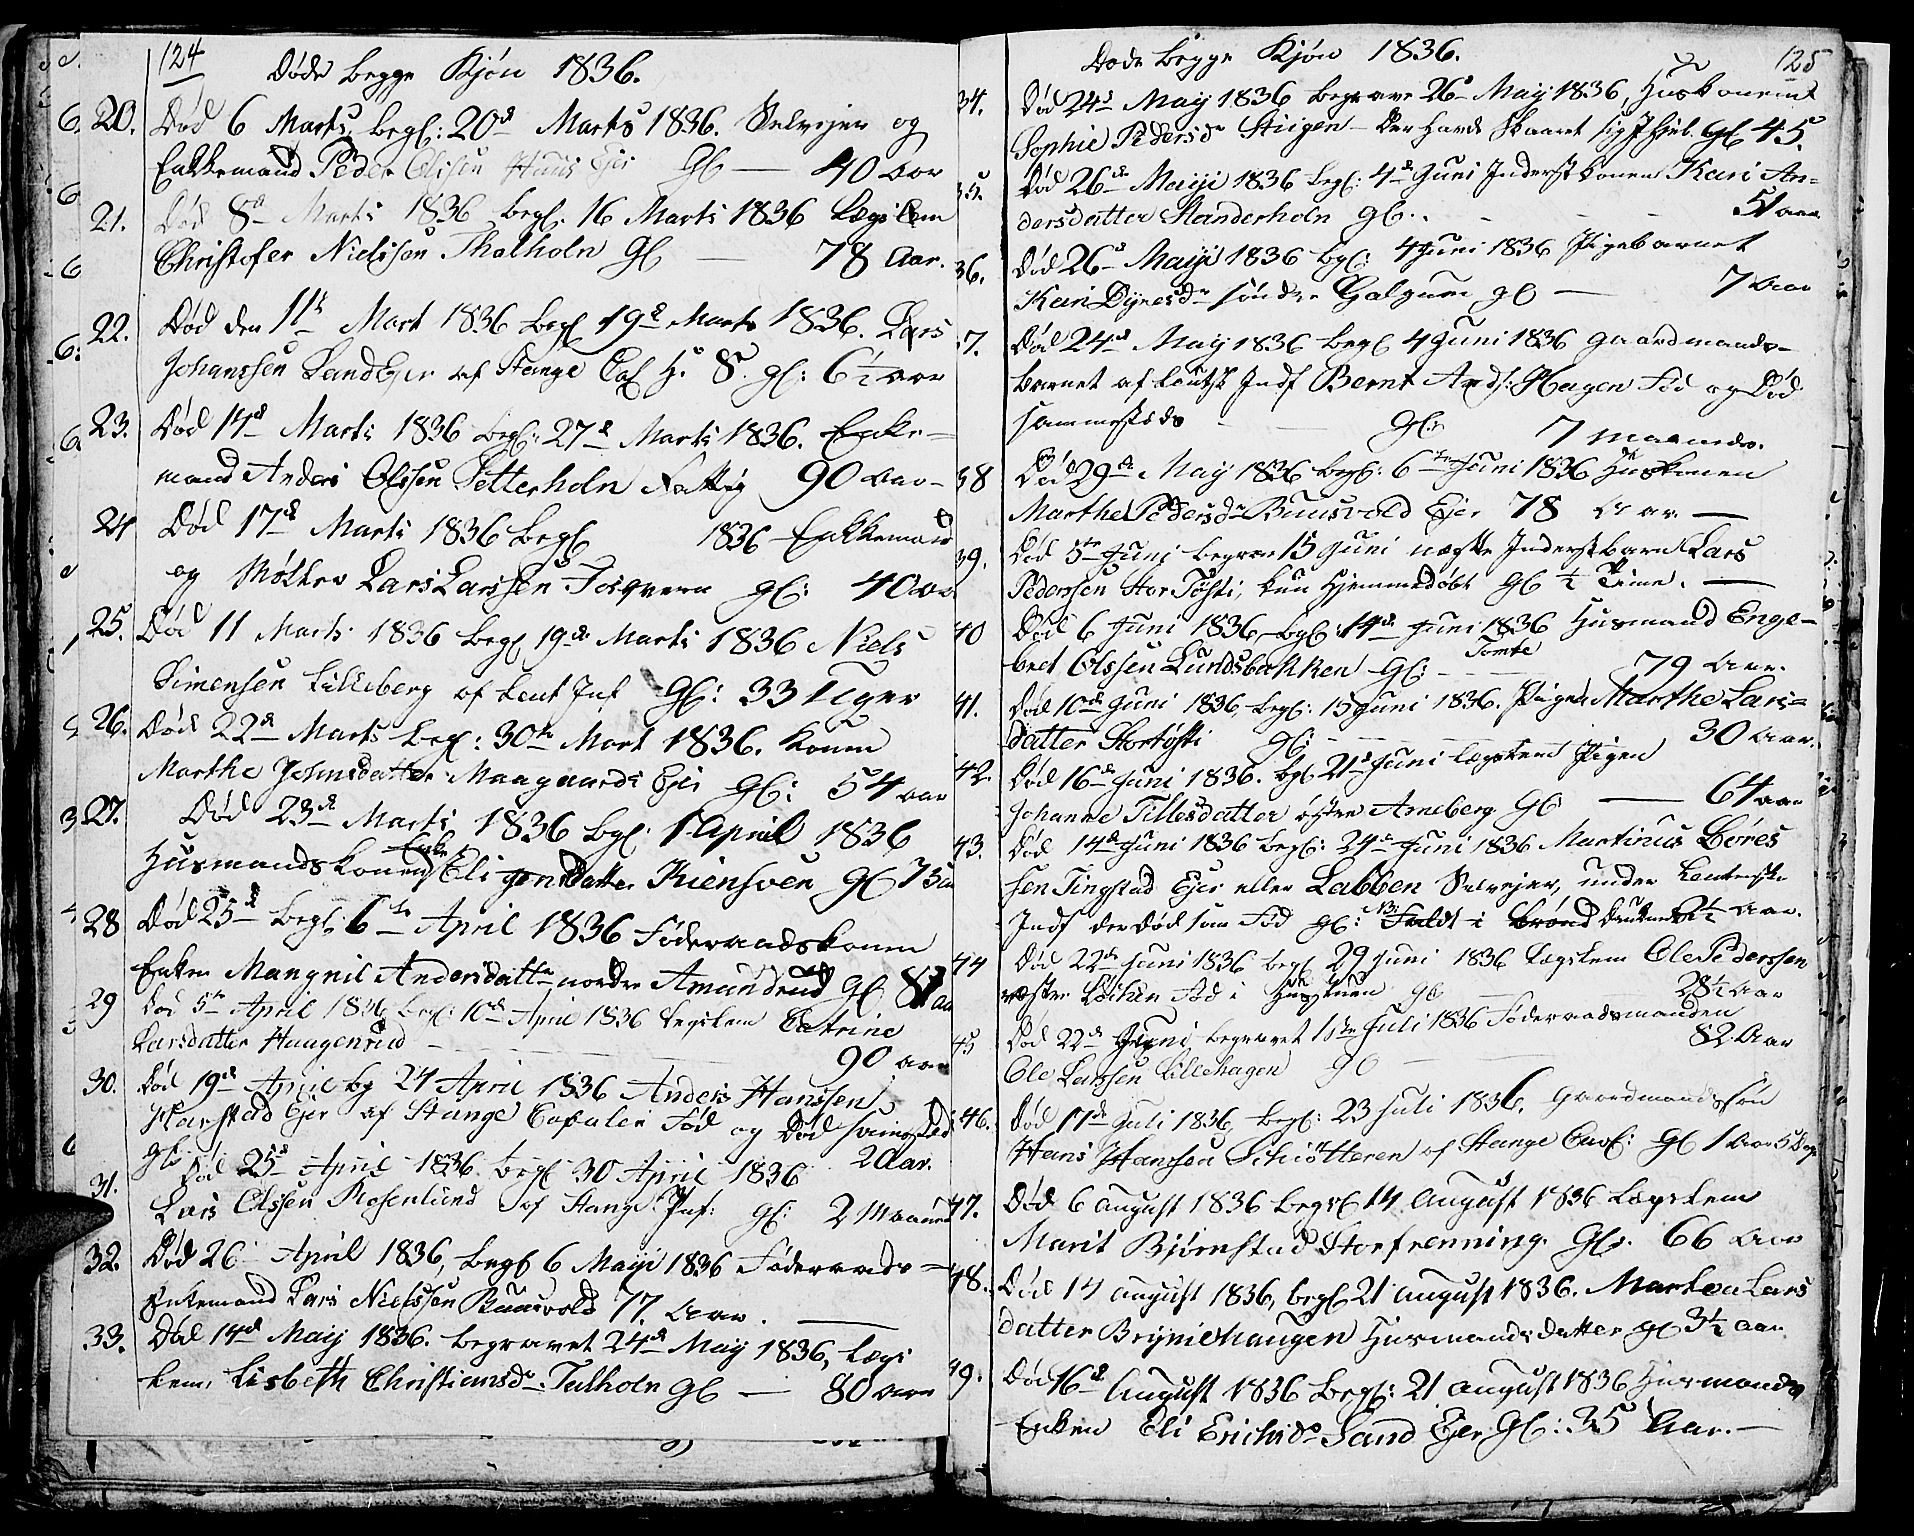 124
Døde begge Kjøn 1836.
20. Død 6 Marts, begr: 20de Marts 1836. Selvejer og
Enkkemand Peder Olssen Huus Ejer gl — 40 Aar
21. Død 8de Marts 1836 begr. 16 Marts 1836 Lægslem
Christofer Nielssen Thalholn gl — 78 Aar.
22. Død den 11te Mart 1836 begr 19de Marts 1836. Lars
Johanssen Sand Ejer af Stange gl: 6½ Aar
23. Død 14de Marts 1836 begr: 27de Marts 1836. Enke-
mand Anders Olssen Setterholn Fattig 90 Aar
24 Død 17de Marts 1836 begr 1836 Enkkemand
og Møller Lars Larssen Fosqvern gl: 40 Aar
25. Død 11 Marts 1836 begr 19de Marts 1836 Niels
Simensen Lilleberg af gl: 33 Uger
26. Død 22de Marts begr: 30te Mart 1836. Konen
Marthe Johnsdatter Maagaards Ejer gl: 54 Aar
27. Død 23de Marts 1836 begr: 1 April 1836
Husmandskonen Enke Eli Kiensven gl 73
28 Død 25de begr: 6te April 1836 Føderaadskonen
Enken Mangnil Andersdatter nordre Amundrud gl
29 Død 5te April 1836 begr: 10de April 1836 Legslem Catrine
Larsdatter Haugenrud — 90 Aar
30. Død 19de April bg 24 April 1836 Anders Hanssen
Harstad Ejer af Stange Capalen Fød og Død samested
gl: 2 Aar.
31. Død 25de April 1836 begr 30 April 1836
Lars Olssen Rosenlund af Stange gl: 2 Maaned
32. Død 26 April 1836, begr 6 Maji 1836 Føderaads-
Enkemand Lars Nielssen Buusvold 77. Aar. —
33. Død 14de Maij 1836. begravet 24de Maij 1836, Lægs
lem, Lisbeth Christiansdr. Talholn gl — 80 Aar
125
Døde begge Kjøn 1836.
34. Død 24de Maij 1836 begrave 26de Maij 1836, Huskonen
Sophie Pedersdr Stiigen — Der havde skaaret sig Ihjel. gl 45.
35. Død 26de Maiji 1836 begr: 4de Juni Inderstkonen Kari An-
dersdatter Standerholn gl. . — 51 Aar
36. Død 26de Maiji 1836 bgr: 4 Juni 1836 Pigebarnet
Kari Dynesdr søndre Galgum gl — 7 Aar
37. Død 24de Maij 1836 begr 4 Juni 1836 Gaardmands-
barnet af Bernt Hagen Fød og Død
sammesteds gl: 7 Maaneder.
38 Død 29de Maij 1836 begr: 6te Juni 1836 Huskonen
Marthe Pedersdr Buusvold Ejer 78 Aar. —
39. Død 5te Juni begrav 15 Juni næste Inderstbarn Lars
Pederssen Stor Tøsti, kun Hjemmedøbt gl ½ Time. —
40 Død 6 Juni 1836, bgr: 14de Juni 1836 Husmand Enge-
bret Olssen Lundsbakken Tomte gl: 79 Aar.
41. Død 10de Juni 1836, begr: 15 Juni 1836. Pigen Marthe Lars-
datter Stortøsti gl: 30 Aar.
42. Død 16de Juni 1836. bgr 21de Juni Lægslem Pigen
Johanne Tillesdatter østre Arneberg gl — 64 Aar
43. Død 14de Juni 1836 begr: 24de Juni 1836 Martinus Børes
sen Tingstad Ejer eller Labben Selvejer, under
der Død som Fød gl: NB: Faldt i Brønd 2½ Aar.
44 Død 22de Juni 1836 begr 29 Juni 1836 Lægslem Ole Pederssen
vestre Løiten Fød i gl 28½ Aar
45 Død 22de Juni begravet 1ste Juli 1836 Føderaadsmanden
Ole Larssen Lillehagen gl — 82 Aar
46. Død 17de Juli 1836, begr: 23 Juli 1836. Gaardmandssøn
Hans Hanssen Schiøtteren af Stange gl 1 Aar 5 Dage
47. Død 6 August 1836 begr 14 August 1836 Lægslem
Marit Bjørnstad Storfrenning. gl. 66 Aar
48. Død 14 August 1836, begr 21 August 1836. Marthea Lars
datter Bryniehaugen Husmandsdatter gl 3½ Aar.
49. Død 16de August 1836 begr: 21 August 1836 Husmands
Enken Eli Erichsdr Sand Ejer gl: 35 Aar. —